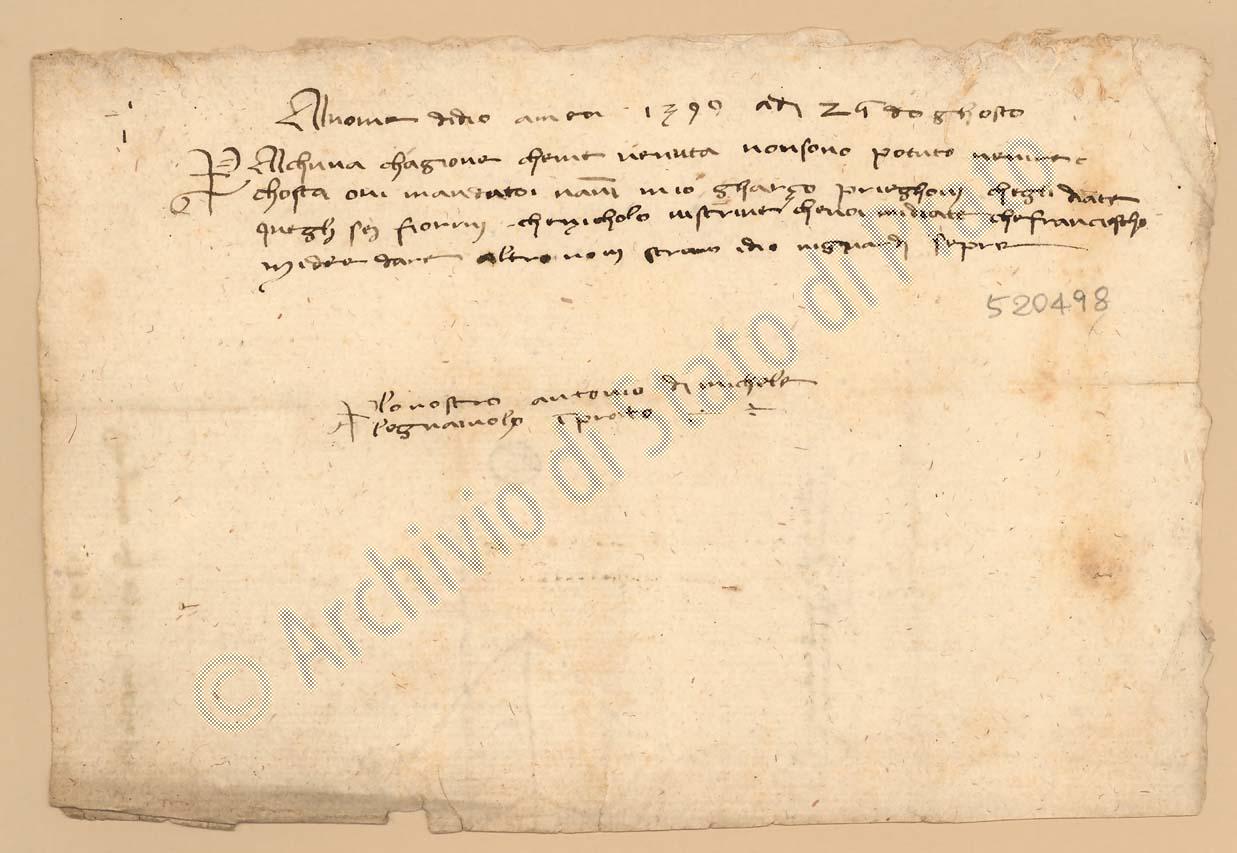 Al nome di dio amen 1390 adi 24 daghosto
P Alchuna chagione chemme venuta nonsono potuto venire
chosta ovi mandato nanni mio gharço prieghovi chegli diate
quegli sei fiorini che nicholo vi scrive che voi mi diate che franciescho
mi dee dare altro non scrivo idio vi guardi sepre
520498
lo vostro antonio di michele
legnaiuolo i prato
© Archivio di Stato di Prato